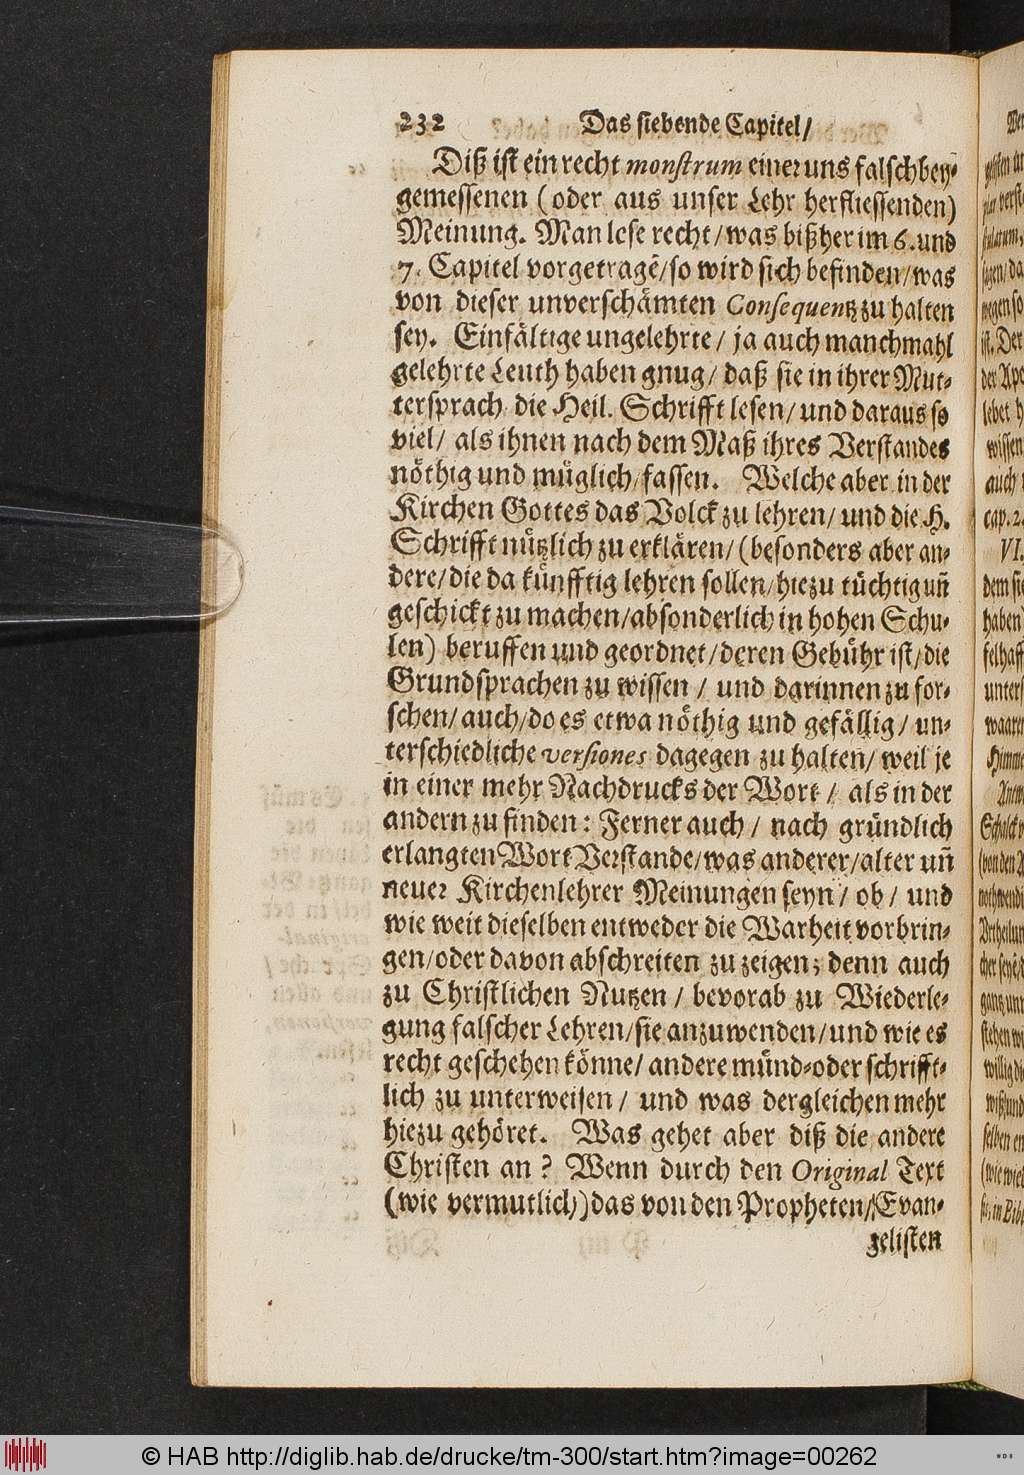 232 Das siebende Capitel/
Diß ist ein recht monstrum einer uns falschbey⸗
gemessenen (oder aus unser Lehr herfliessenden)
Meinung. Man lese recht/was bißher im 6. und
7. Capitel vorgetragē/so wird sich befinden/was
von dieser unverschämten Consequentz zu halten
sey. Einfältige ungelehrte/ ja auch manchmahl
gelehrte Leuth haben gnug/ daß sie in ihrer Mut⸗
tersprach die Heil. Schrifft lesen/ und daraus so
viel/ als ihnen nach dem Maß ihres Verstandes
nöthig und müglich/ fassen. Welche aber in der
Kirchen Gottes das Volck zu lehren/ und die H.
Schrifft nützlich zu erklären/ (besonders aber an⸗
dere/ die da künfftig lehren sollen/hiezu tüchtig uñ
geschickt zu machen/absonderlich in hohen Schu⸗
len) beruffen und geordnet/deren Gebühr ist/die
Grundsprachen zu wissen / und darinnen zu for⸗
schen/ auch/do es etwa nöthig und gefällig/ un⸗
terschiedliche versiones dagegen zu halten/ weil je
in einer mehr Nachdrucks der Wort / als in der
andern zu finden: Ferner auch / nach gründlich
erlangten Wort Verstande/was anderer/alter uñ
neuer Kirchenlehrer Meinungen seyn/ ob/ und
wie weit dieselben entweder die Warheit vorbrin⸗
gen/oder davon abschreiten zu zeigen; denn auch
zu Christlichen Nutzen / bevorab zu Wiederle⸗
gung falscher Lehren/sie anzuwenden/und wie es
recht geschehen könne/ andere münd⸗oder schrifft⸗
lich zu unterweisen / und was dergleichen mehr
hiezu gehöret. Was gehet aber diß die andere
Christen an? Wenn durch den Original Text
(wie vermutlich/) das von den Propheten/ Evan⸗
gelisten
© HAB http://diglib.hab.de/drucke/tm-300/start.htm?image=00262